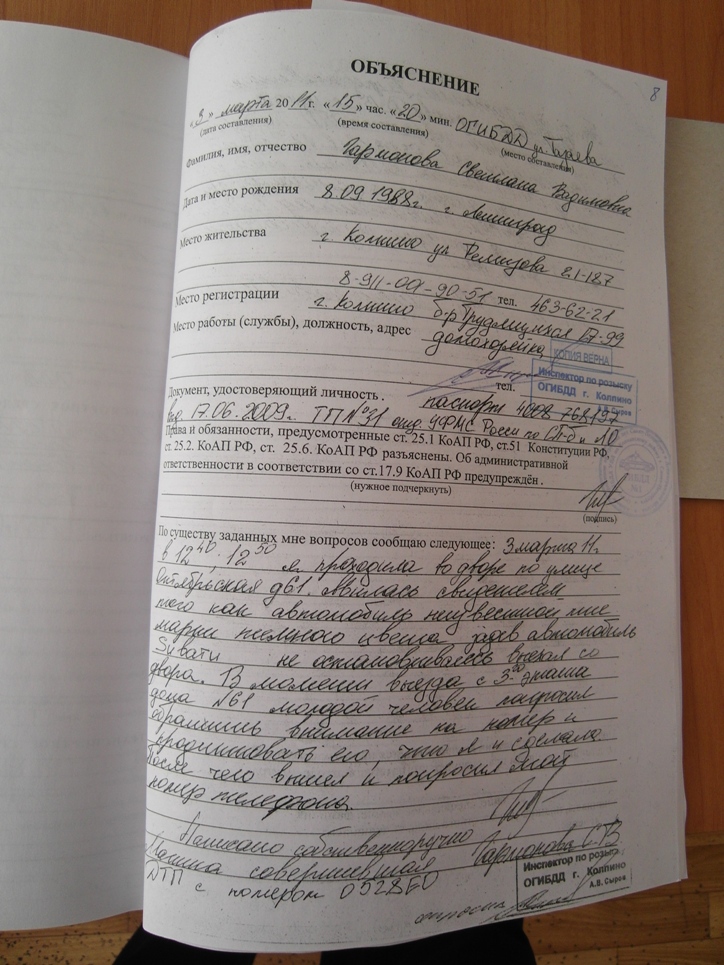 8
ОБЪЯСНЕНИЕ
«3» марта 2011г. «15» час. «20» мин. ОГИБДД ул
(дата составления) (время составления) (место составления)
Фамилия, имя, отчество Гармонова Светлана Вадимовна
Дата и место рождения 8.09 1988г. г. Ленинград
Место жительства г Колпино ул Ремизова 21-187
8-911-09-90-51 тел. 463-62-21
Место регистрации г. Колпино б-р Трудящихся 17-99
Место работы (службы), должность, адрес домохозяйка
КОПИЯ ВЕРНА
Инспектор по розыску
ОГИБДД г. Колпино
А.В. Сыров
тел.
Документ, удостоверяющий личность . паспорт 4008 768197
выд 17.06.2009г. ТП №31 отд УФМС России по СПб и ЛО
Права и обязанности, предусмотренные ст. 25.1 КоАП РФ, ст.51 Конституции РФ,
ст. 25.2. КоАП РФ, ст. 25.6. КоАП РФ разъяснены. Об административной
ответственности в соответствии со ст.17.9 КоАП РФ предупреждён .
(нужное подчеркнуть)
(подпись)
По существу заданных мне вопросов сообщаю следующее: 3 марта 11г.
в 12 40, 12 50 я проходила во дворе по улице
Октябрьская д 61. Явилась свидетелем
того как автомобиль неизвестной мне
марки темного цвета задев автомобиль
Subaru не остановившись выехал со
двора. В момент выезда с 3-го этажа
дома №61 молодой человек попросил
обратить внимание на номер и
продиктовать его, что я и сделала.
После чего вышел и попросил мой
номер телефона.
Написано собственноручно Гармонова С В
Машина совершившая
ДТП с номером 052860
Инспектор по розыску
ОГИБДД г. Колпино
А.В. Сыров